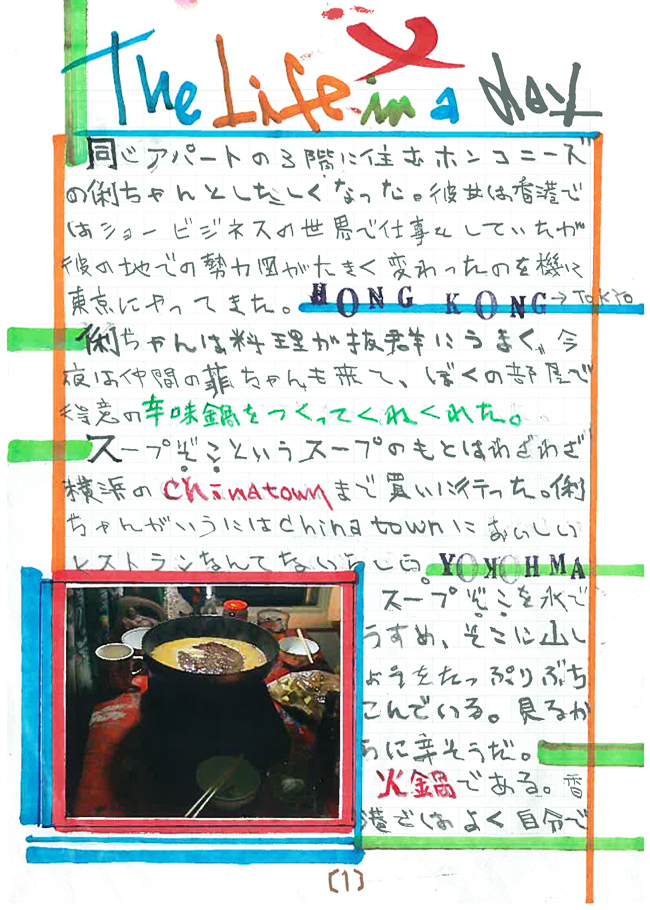 The Life in a day
同じアパートの3階に住むホンコニーズ
の俐ちゃんとしたしくなった。彼女は香港で
はショービジネスの世界で仕事をしていたが
彼の地での勢力図が大きく変わったのを機に
東京にやってきた。HONG KONG→TOKYO
俐ちゃんは料理が抜群にうまく、今
夜は仲間の菲ちゃんも来て、ぼくの部屋で
得意の辛味鍋をつくってくれくれた。
スープぞこというスープのもとはわざわざ
横浜のchinatownまで買いに行った。俐
ちゃんがいうにはchinatownにおいしい
レストランなんてないらしい。YOKOHMA
スープぞこを水で
うすめ、そこに山し
ょうをたっぷりぶち
こんでいる。見るか
らに辛そうだ。
火鍋である。香
港ではよく自分で
(1)